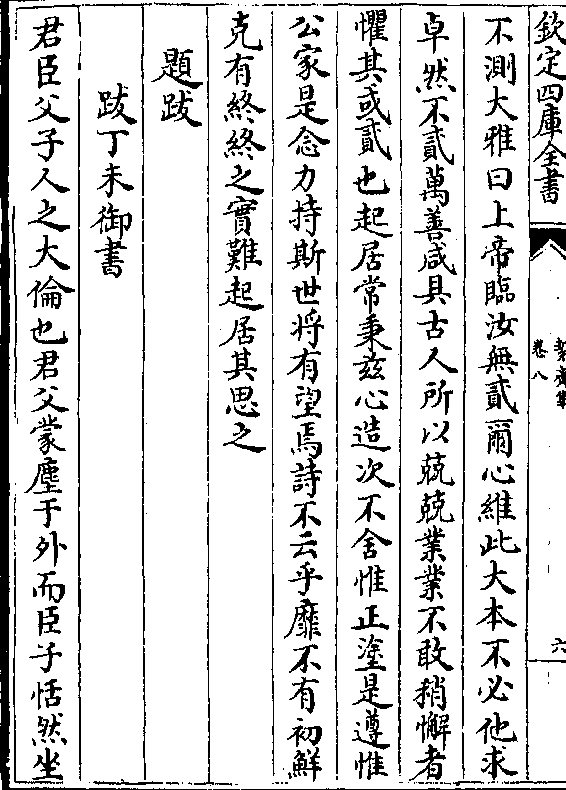 欽定四庫全書
卷八
六
不測大雅曰上帝臨汝無貳爾心維此大本不必他求
卓然不貳萬善咸具古人所以兢兢業業不敢稍懈者
懼其或貳也起居常秉茲心造次不舍惟正塗是遵惟
公家是念力持斯世將有望焉詩不云乎靡不有初鮮
克有終終之實難起居其思之
題跋
跋丁未御書
君臣父子人之大倫也君父蒙塵于外而臣子恬然坐